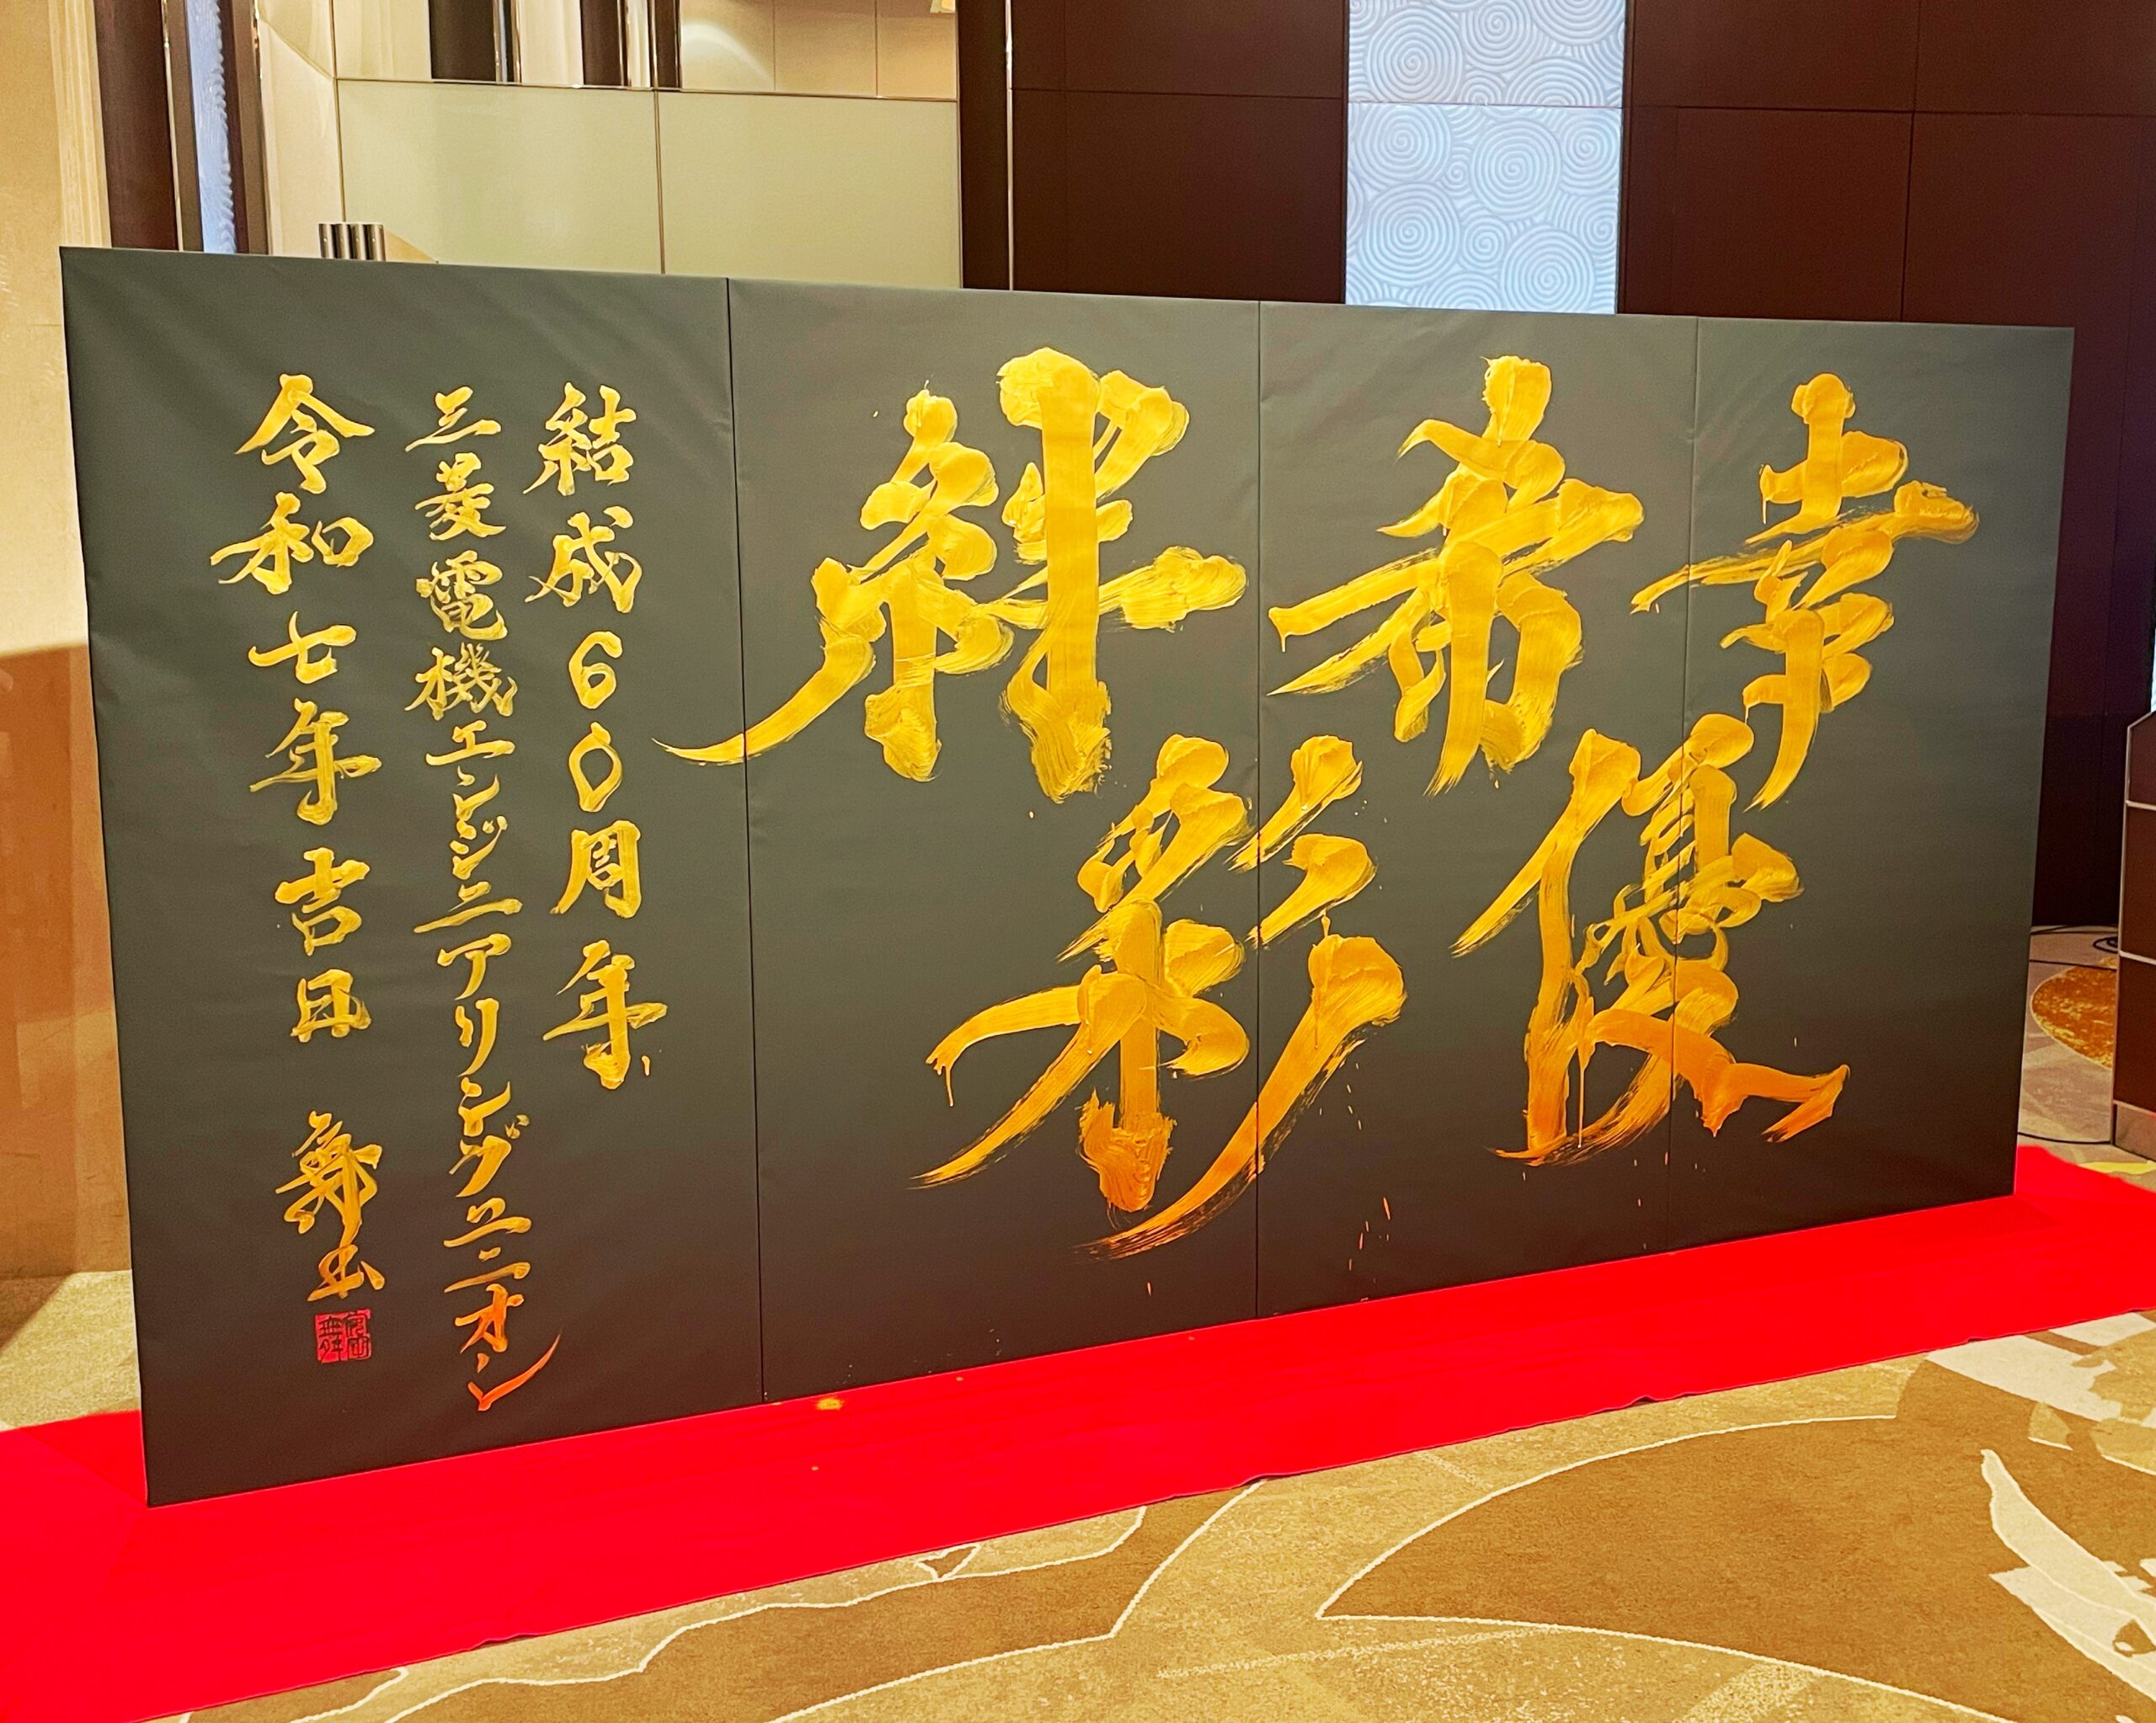 幸希絆
優彩
結成60周年
三菱電機エンジニアリングユニオン
令和七年吉日